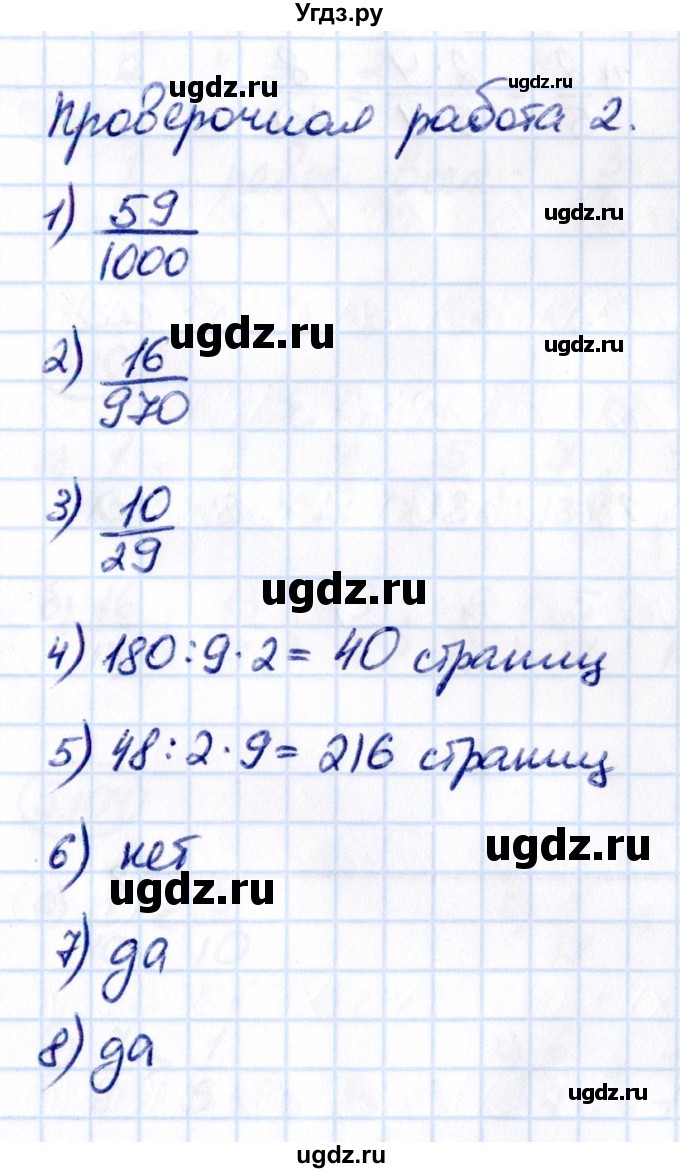 Угдз.ру
ugdz.ru
ugdz.ru
Проверочная работа 2.
1) 59/1000
ugdz.ru
2) 16/970
ugdz.ru
ugdz.ru
3) 10/29
ugdz.ru
4) 180:9·2= 40 страниц
5) 48:2·9= 216 страниц
ugdz.ru
6) нет
ugdz.ru
7) да
8) да
ugdz.ru
ugdz.ru